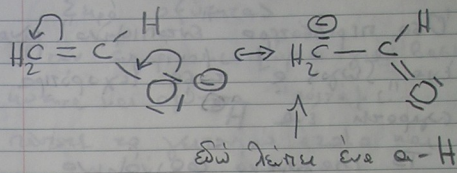 H₂C = C H O ⊖ ↔ H₂C ⊖ — C H O
εδώ λείπει ένα α-H